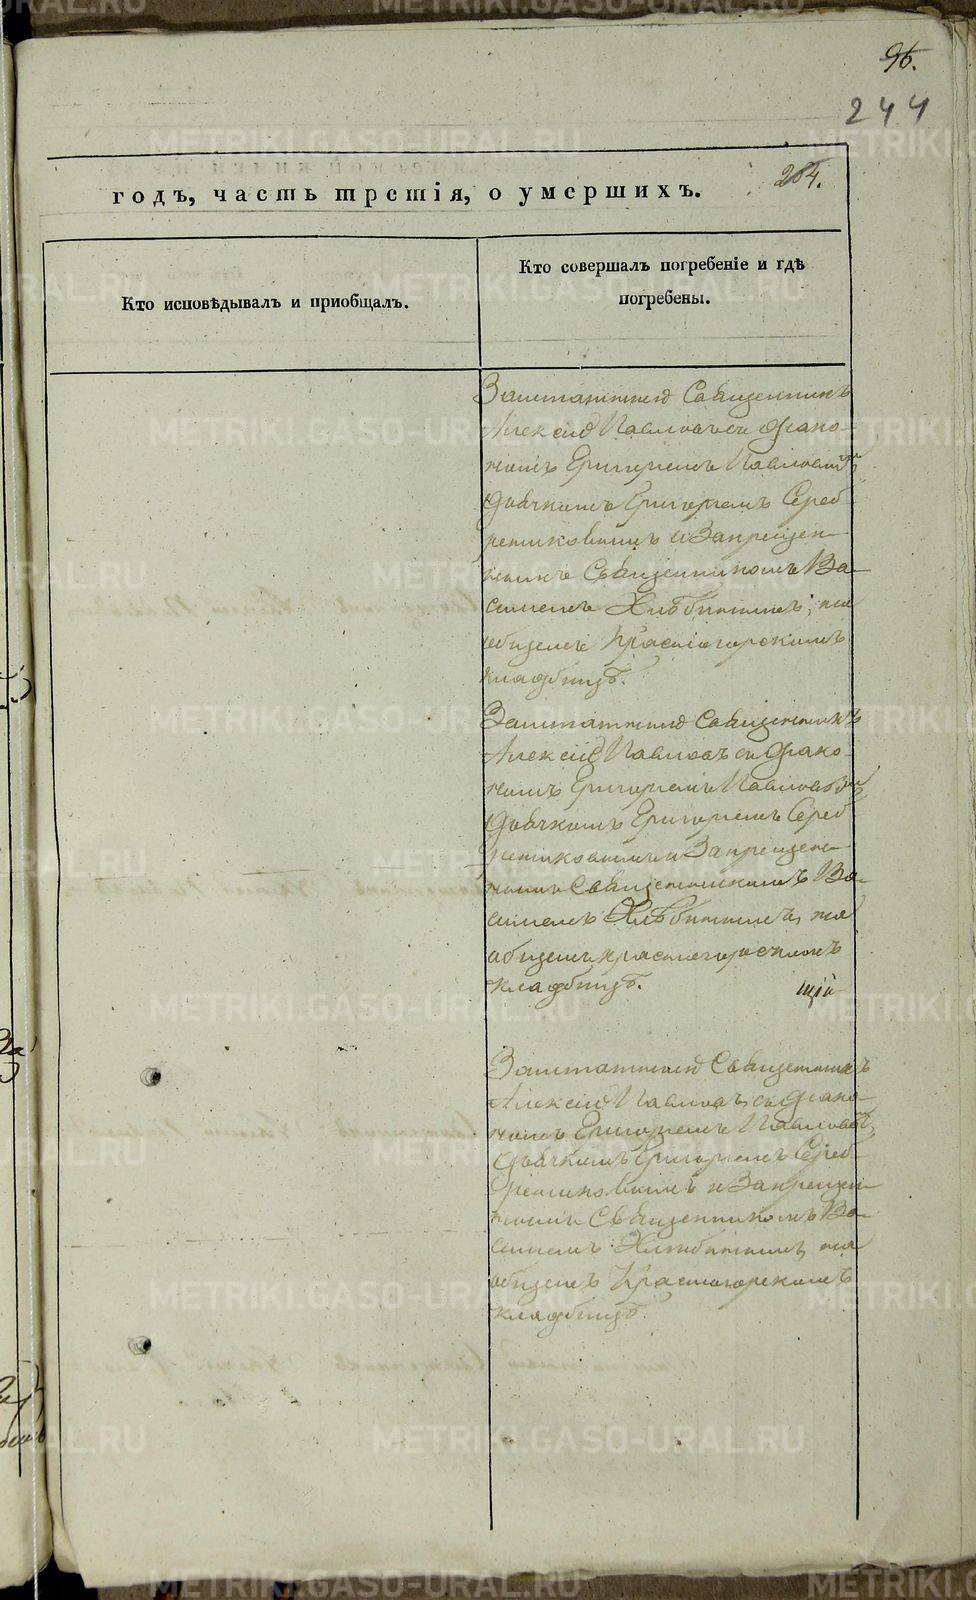 96.
244
204.
годъ, часть третія, о умершихъ.
Кто исповѣдывалъ и приобщалъ.
Кто совершалъ погребеніе и гдѣ
погребены.
Заштатный Священникъ
Алексій Павловъ съ Діако-
номъ Григоріемъ Павловымъ
дьячкомъ Григоріемъ Сереб
рениковымъ и Запрещен-
нымъ Священникомъ Ва-
силіемъ Хлѣбинымъ, на
общемъ Красногорскомъ
кладбищѣ.
Заштатный Священникъ
Алексій Павловъ съ Діако-
номъ Григоріемъ Павловым
дьячкомъ Григоріемъ Сереб
рениковымъ и Запрещен-
нымъ Священникомъ Ва-
силіемъ Хлѣбинымъ, на
общемъ красногорскомъ
кладбищѣ.
щій
Заштатный Священникъ
Алексій Павловъ, съ Діако-
номъ Григоріемъ Павловым,
дьячкомъ Григоріемъ Сереб-
рениковымъ и Запрещен-
нымъ Священникомъ Ва-
силіемъ Хлебинымъ, на
общемъ Красногорскомъ
кладбищѣ.
METRIKI.GASO-URAL.RU